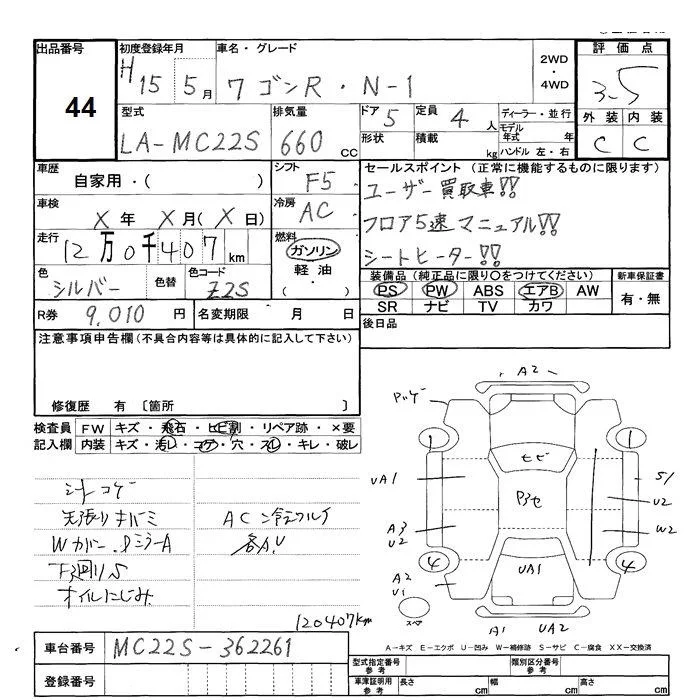 出品番号
44
初度登録年月
H 15年 5月
車名・グレード
ワゴンR・N-1
2WD
・
4WD
評価点
3.5
外装 内装
C C
型式
LA-MC22S
排気量
660 CC
ドア 5
形状
定員 4 人
積載 kg
ディーラー・並行
モデル年式 年
ハンドル 左・右
車歴
自家用・( )
シフト
F5
セールスポイント (正常に機能するものに限ります)
ユーザー買取車!!
フロア5速マニュアル!!
シートヒーター!!
車検
X年 X月(X日)
冷房
AC
走行
12万0千407km
燃料
ガソリン
軽油・
( )
色
シルバー
色替
色コード
Z2S
装備品 (純正品に限り○をつけてください)
PS PW ABS エアB AW
SR ナビ TV カワ
新車保証書
有・無
R券 9,010 円
名変期限 月 日
後日品
注意事項申告欄 (不具合内容等は具体的に記入して下さい)
修復歴 有 〔箇所 〕
検査員 FW キズ・飛石・ヒビ割・リペア跡・×要
記入欄 内装 キズ・汚レ・コゲ・穴・スレ・キレ・破レ
シートコゲ
天張りキバミ
Wカバー、PミラーA
下廻りS
オイルにじみ
AC冷えワルイ
各A.U
120407km
A2
1
1
UA1
ヒビ
S1
U2
A3
U2
W2
4
4
A2
U1
UA1
スペア
A1 UA2
A-キズ E-エクボ U-凹み W-補修跡 S-サビ C-腐食 XX-交換済
車台番号 MC22S-362261
登録番号
型式指定番号
参考
類別区分番号
参考
車庫証明用
参考
長さ cm 幅 cm 高さ cm